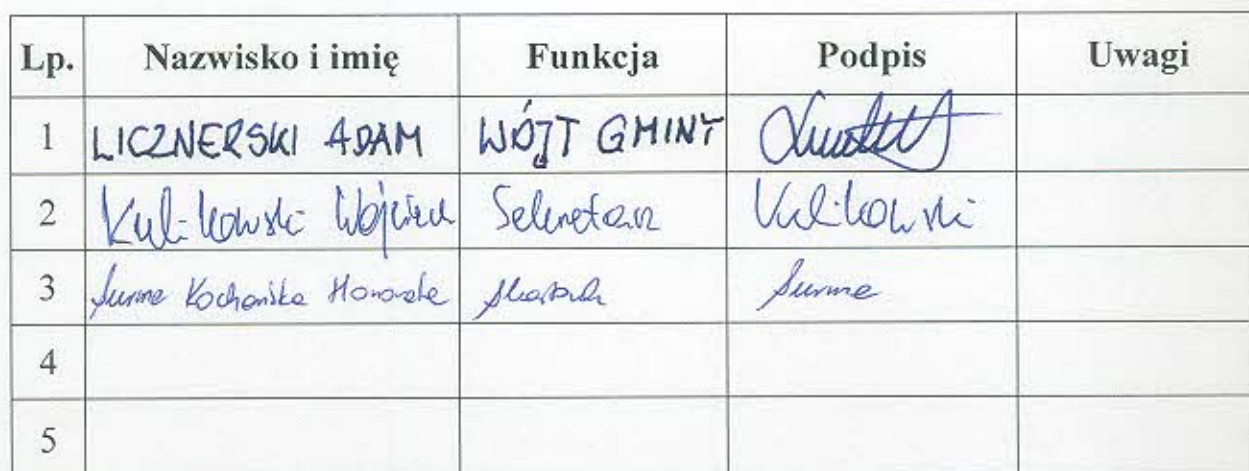 Lp. Nazwisko i imię Funkcja Podpis Uwagi
1 LICZNERSKI ADAM WÓJT GMINY
2 Kulikowski Wojciech Sekretarz Kulikowski
3 Surma Kochańska Honorata Skarbnik Surma
4
5